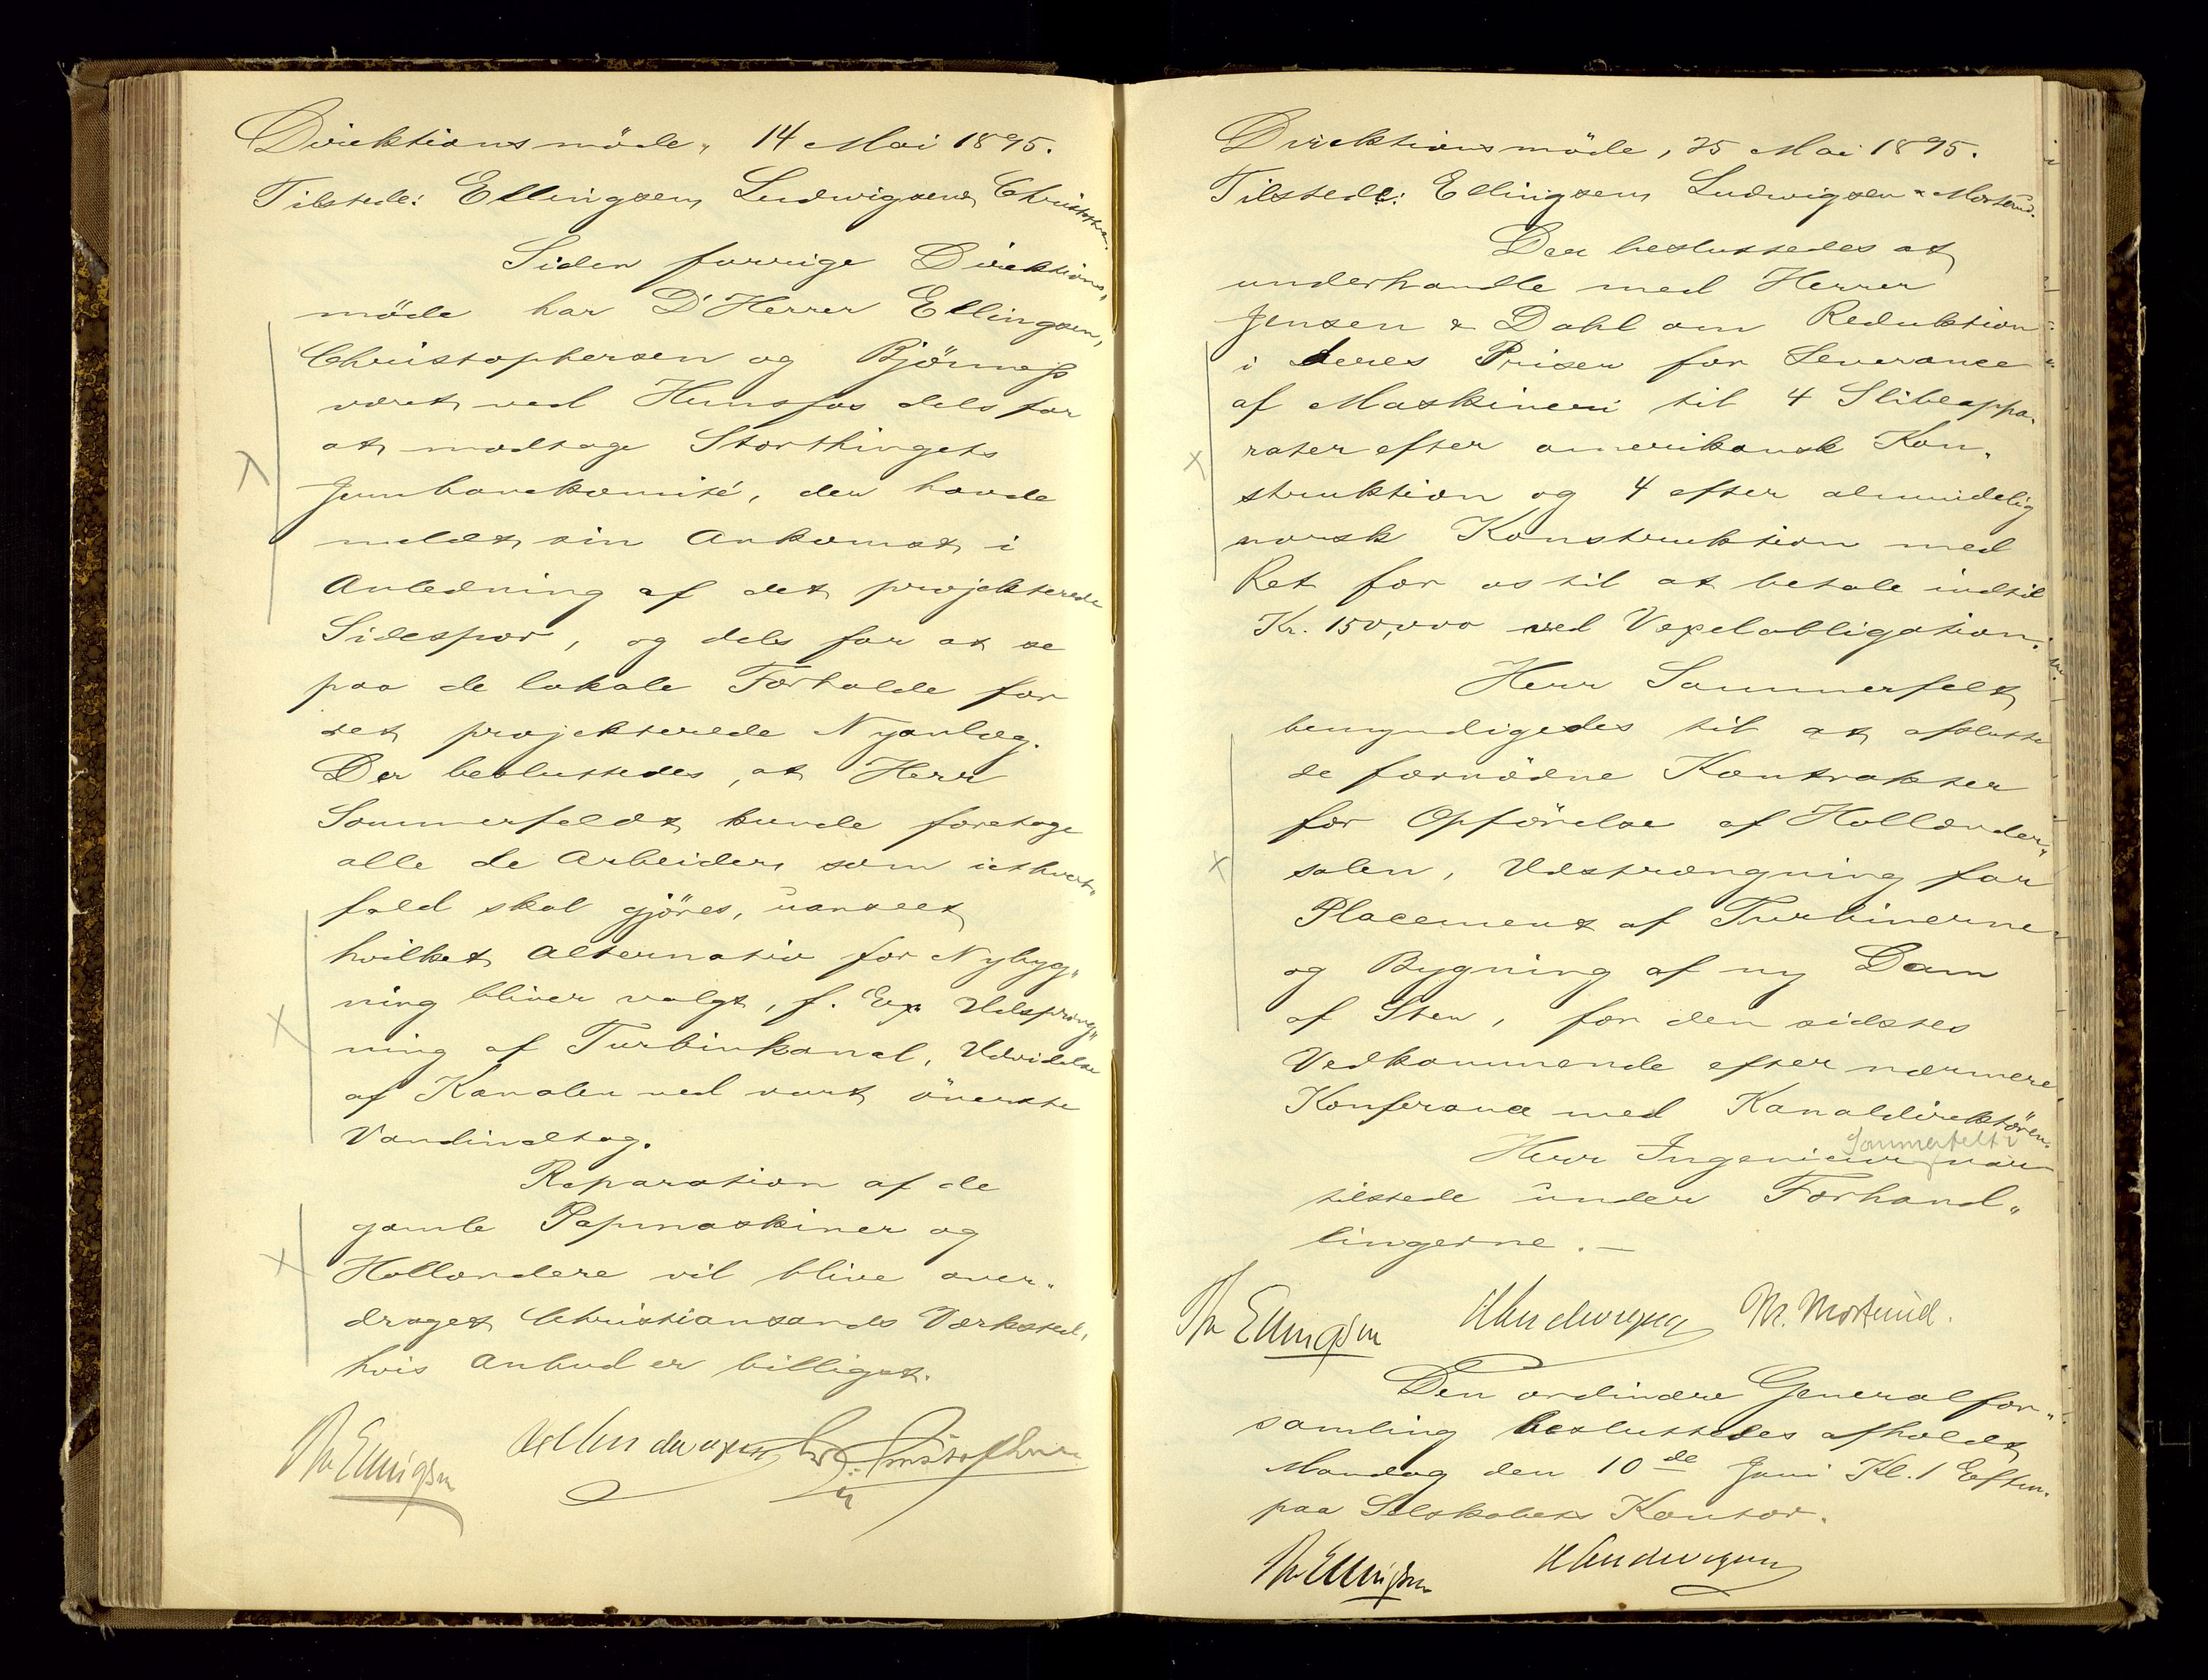 Direktionsmöde, 14 Mai 1895.
Tilstede: Ellingsen, Ludwigsen & Christophe.
Siden forrige Direktions„
möde har D'Herrer Ellingsen,
Christophersen og Björness
været ved Hunsfos dels for
at modtage Storthingets
Jernbanekomité, der havde
meldt sin Ankomst i
Anledning af det projekterede
Sidespor, og dels for at se
paa de lokale Forholde for
det projekterede Nyanlæg.
Der besluttedes, at Herr
Sommerfeldt kunde foretage
alle de Arbeider, som i ethvert„
fald skal gjöres, uanseet
hvilket Alternativ for Nybyg„
ning bliver valgt, f. Ex. Udspræng„
ning af Turbinkanal, Udvidelse
af Kanalen ved vort överste
Vandindtag.
Reparation af de
gamle Papmaskiner og
Hollændere vil blive over„
draget Christianssands Værksted,
hvis Anbud er billigst.
Th Ellingsen H Ludwigsen Chr. Christophersen
Direktionsmöde, 25 Mai 1895.
Tilstede: Ellingsen, Ludwigsen & Mortend.
Der besluttedes at
underhandle med Herrer
Jensen & Dahl om Reduktion
i deres Priser for Leverance
af Maskineri til 4 Slibeappa„
rater efter amerikansk Kon„
struktion og 4 efter almindelig
norsk Konstruktion med
Ret for os til at betale indtil
Kr. 150,000 ved Vexelobligation.
Herr Sommerfelt
bemyndigedes til at afslutte
de fornödne Kontrakter
for Opförelse af Hollænder„
salen, Udsprængning for
Placement af Turbinerne
og Bygning af ny Dam
af Sten, for den sidstes
Vedkommende efter nærmere
Konferance med Kanaldirektören.
Sommerfelt
Herr Ingenieur var
tilstede under Forhand„
lingerne. —
Th Ellingsen H Ludwigsen M. Mortend.
Den ordinære Generalfor„
samling besluttedes afholdt
Mandag den 10de Juni Kl. 1 Eftm.
paa Selskabets Kontor.
Th Ellingsen H Ludwigsen